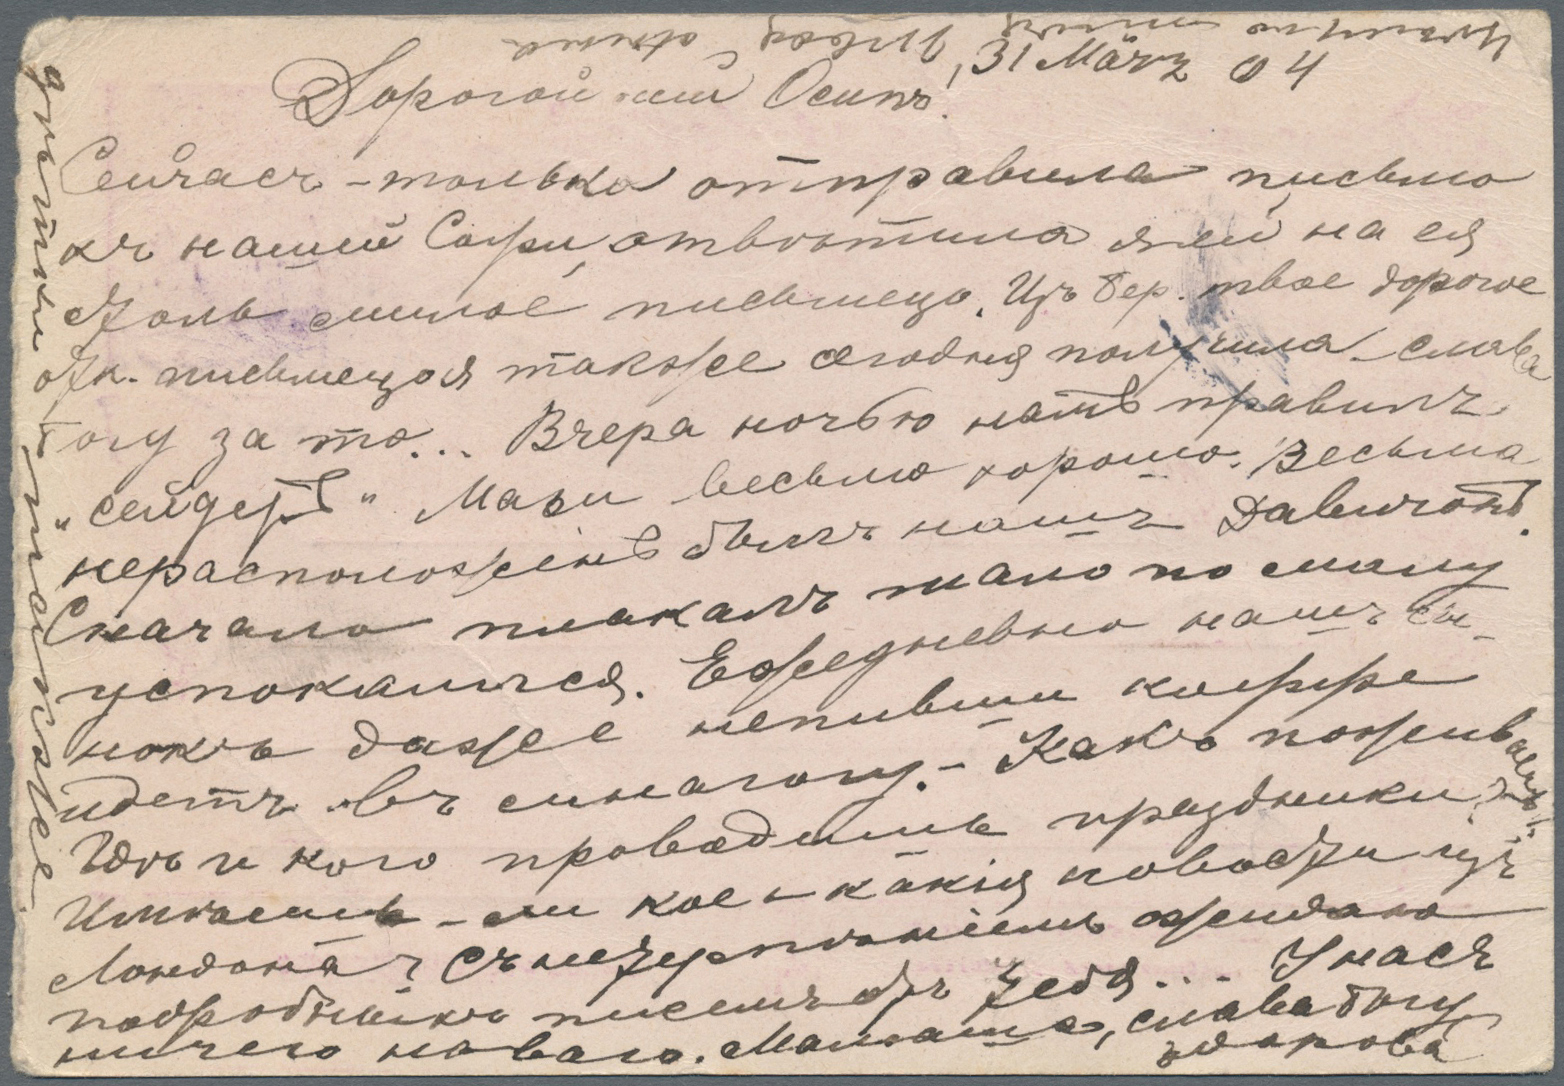 31 März 04
Дорогой мой Осипъ!
Сейчасъ-только отправила письмо
къ нашей Софи, отвѣтила я ей на ея
столь милое письмецо. Изъ Бер. твое дорогое
отк. письмецо я также сегодня получила - слава
Богу за то... Вчера ночью намъ правилъ
"сейдеръ" Мази весьмо хорошо. Весьма
нерасположенъ былъ нашъ Давидъ.
Сначало плакалъ мало по малу
успокаился. Ежедневно нашъ сы-
нокъ даже непивши коффе
идетъ въ синагогу. - Какъ поживаешь?
Гдѣ и кого проводишь праздники?
Имѣешь-ли кое-какія новости изъ
Лондона? Съ нетерпѣніемъ ожидаю
подробныхъ писемъ отъ тебя... У насъ
ничего новаго. Мамаша, слава Богу,
здорова
дѣтки также.